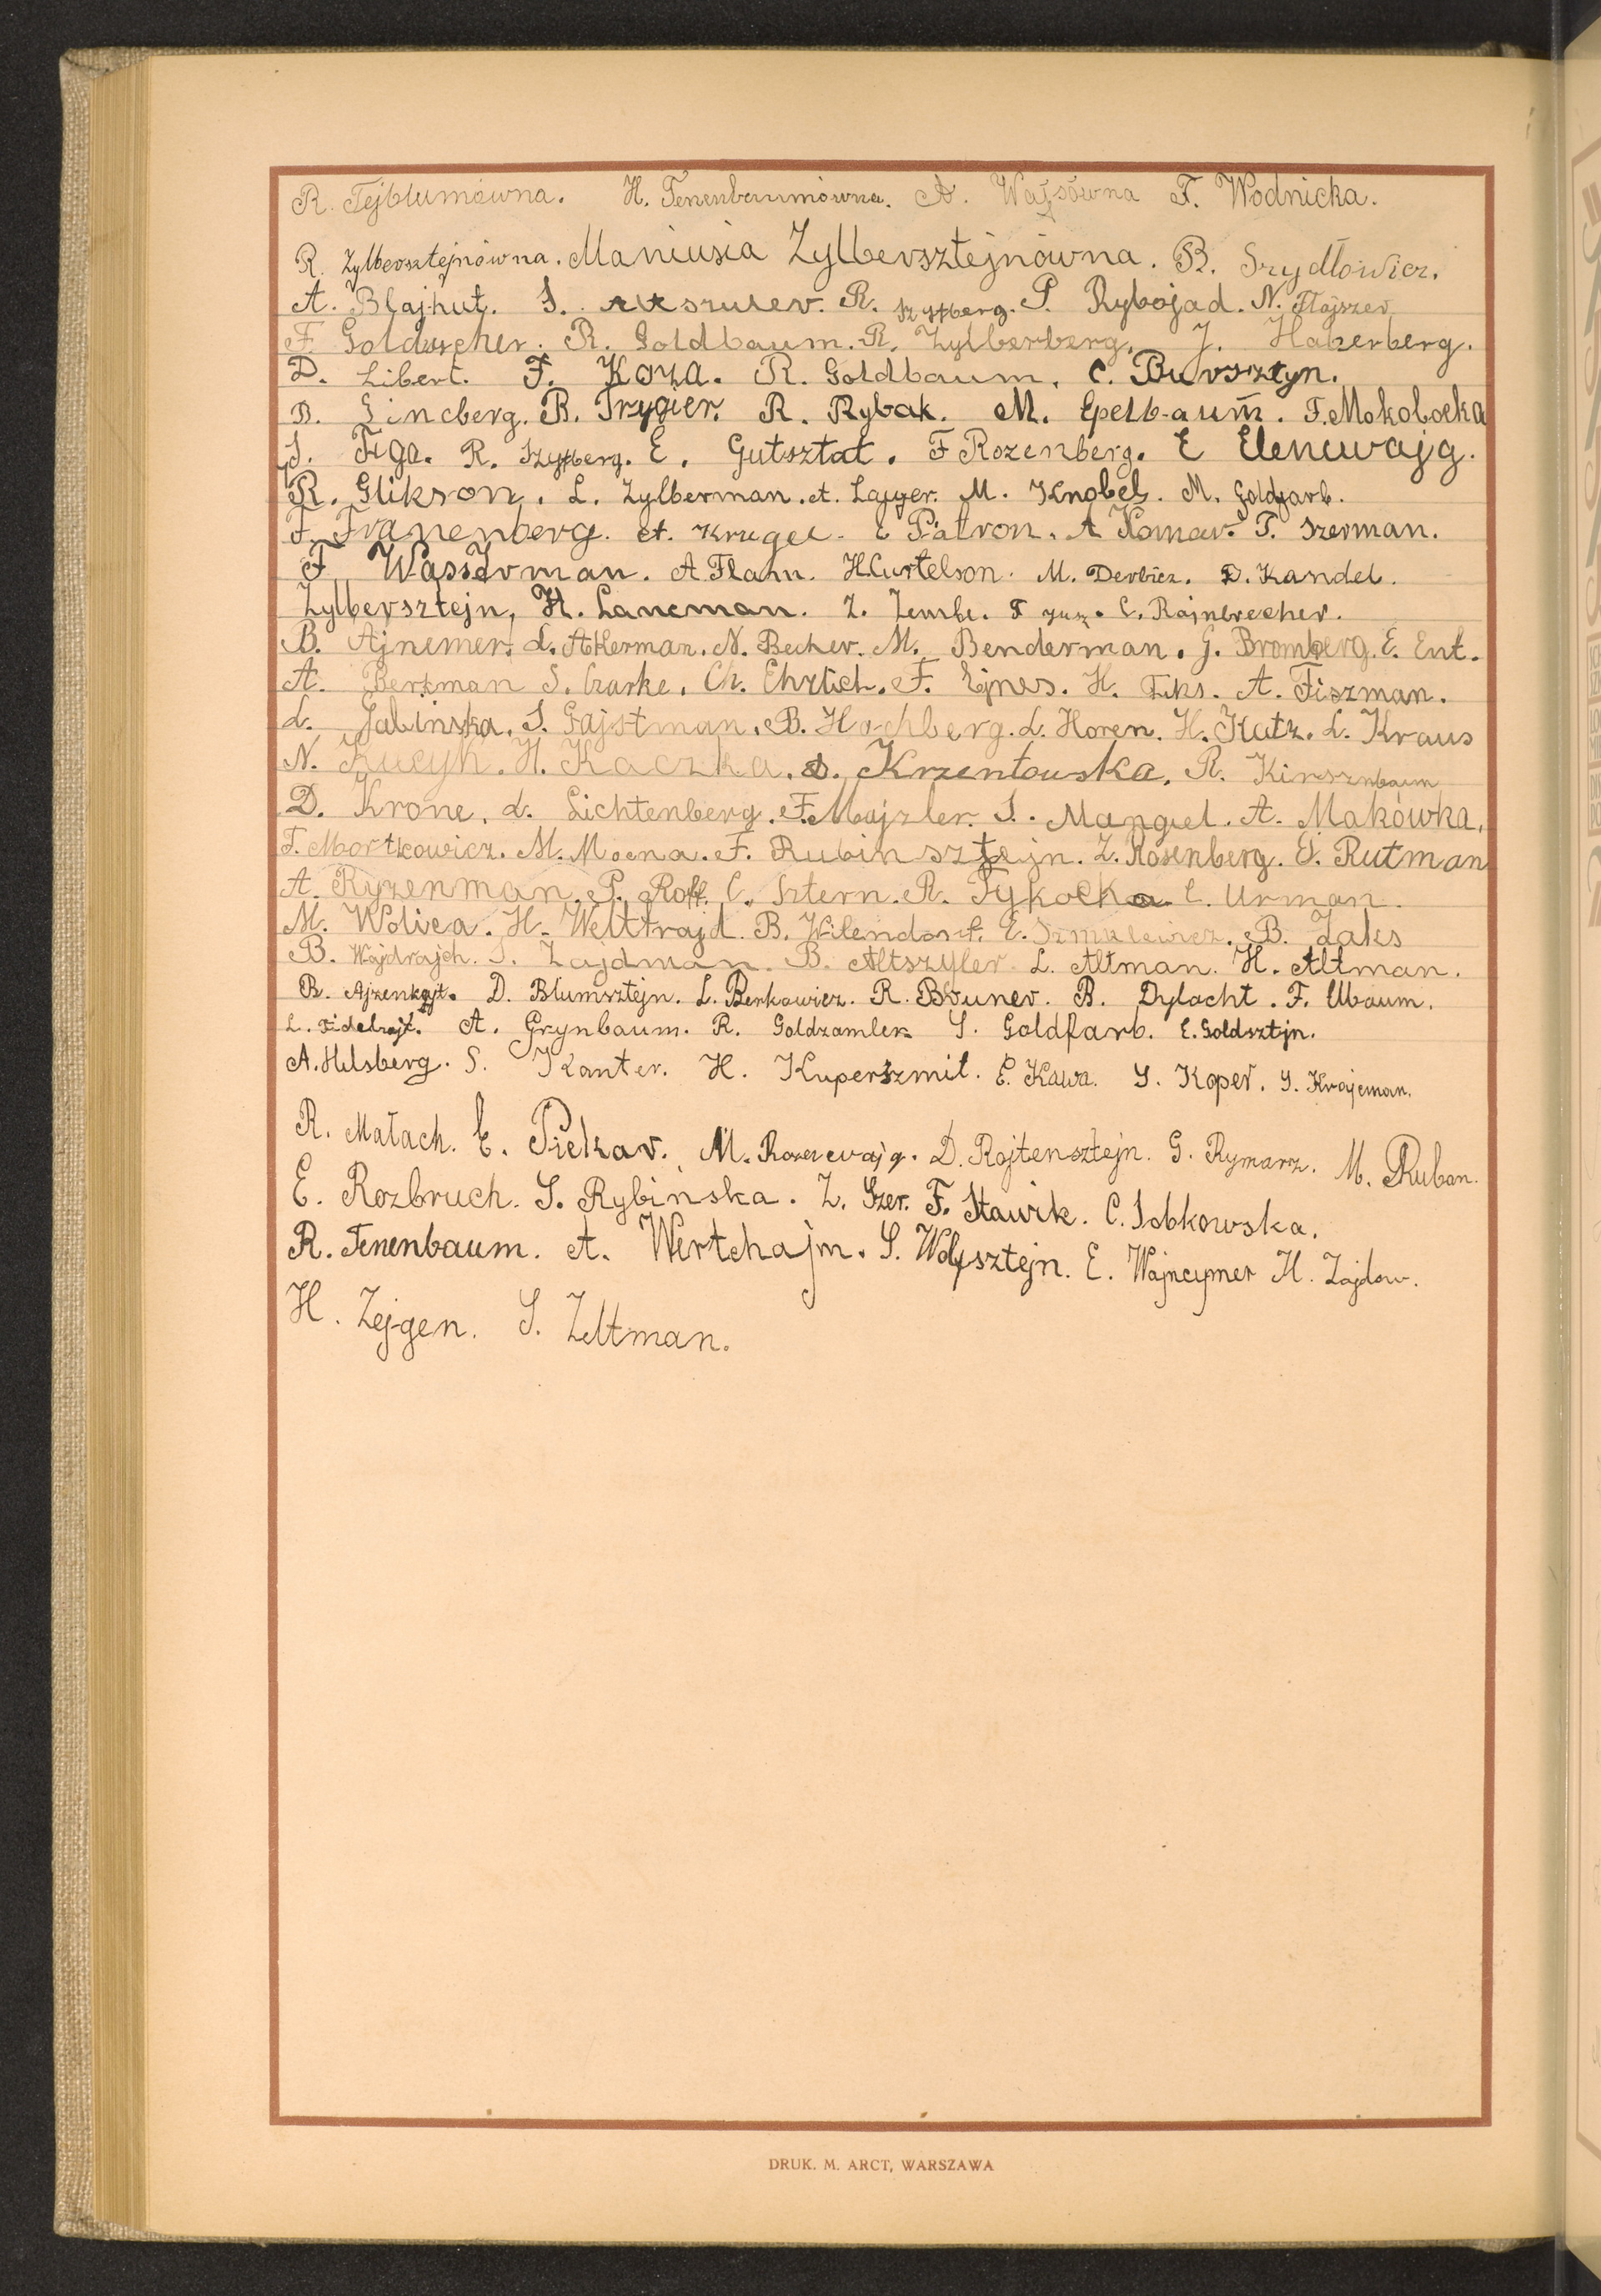 R. Tejblumówna. H. Tenenbaumówna. A. Wajsówna F. Wodnicka.
R. Zylbersztejnówna. Maniusia Zylbersztejnówna. B. Szydłowicz.
A. Blajhut. S. R. Szyfberg. P. Rybojad. N. Flajszer
F. R. Goldbaum. R. Zylberberg, J. Haberberg.
D. Libert. F. Koza. R. Goldbaum. C. Bursztyn.
B. Lincberg. B. Frygier. R. Rybak. M. Epelbaum. F. Mokobocka
S. Figa. R. Szyfberg. E. Gutsztat. F Rozenberg. E Elencwajg.
R. Glikson. L. Zylberman. A. Lajzer. M. Knobel. M. Goldfarb.
F. Franenberg. A. Krugel. E Patron. A Komar. T. Szerman.
F Wasserman. A. Flahn. H. Curtelson. M. Derbicz. D. Kandel.
Zylbersztejn, H. Lancman. Z. Zembe. F C. Rajnbrecher.
B. Ajnemer. L. Akerman. N. Becher. M. Benderman. G. Bromberg. E. Ent.
A. Berkman S. Czarke. Ch. Ehrlich. F. Ejnes. H. Fuks. A. Fiszman.
L. Jabłińska. S. Gajstman. B. Hochberg. L. Horen. H. Katz. L. Kraus
N. Kucyk. H. Kaczka. S. Krzentowska. R. Kirsznbaum
D. Krone. L. Lichtenberg. F. Majzler. S. Mangiel. A. Makówka.
F. Mortkowicz. M. Mocna. F. Rubinsztejn. Z. Rosenberg. E. Rutman
A. Ryzenman. P. Roff. C. Sztern. R. Tykocka. C. Urman.
M. Wolica. H. Weltfrajd. B. Wilendorf. E. Szmulewicz. B. Zaks
B. Wajdrajch. S. Zajdman. B. Altszyler. L. Altman. H. Altman.
B. Ajzenkajt. D. Blumsztejn. L. Berkowicz. R. Bruner. B. Dylacht. F. Elbaum.
L. Fidelzajt. A. Grynbaum. R. Goldzamler S. Goldfarb. E. Goldsztjn.
A. Helsberg. S. Kanter. H. Kuperszmit. E. Kawa. S. Koper. S. Krajcman.
R. Małach. E. Piekar. M. Rozencwajg. D. Rojtensztejn. G. Rymarz. M. Ruban.
E. Rozbruch. S. Rybinska. Z. Szer. F. Stawik. C. Sobkowska.
R. Tenenbaum. A. Wertchajm. S. Wolfsztejn. E. Wajncymer H. Zajdow.
H. Zejgen. S. Zeltman.
DRUK. M. ARCT, WARSZAWA